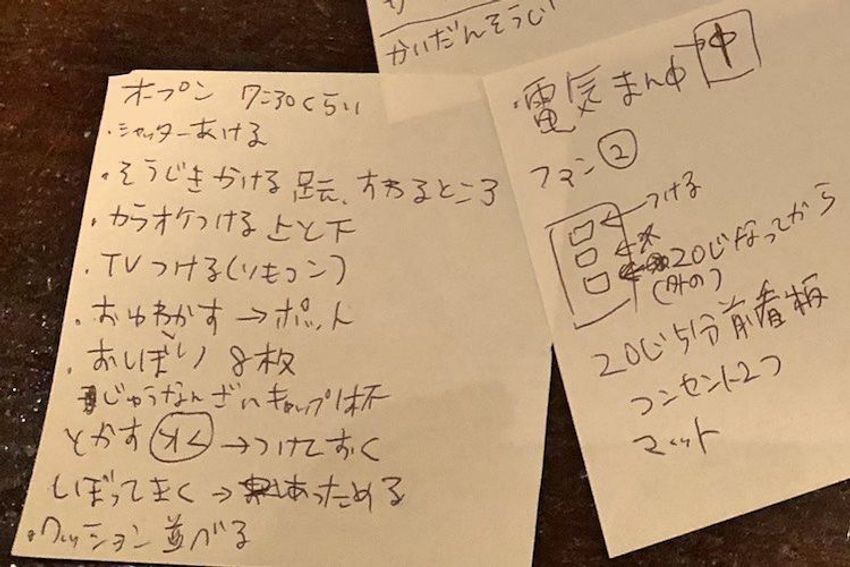 かいだんそうじ
オープン 7:30くらい
・シャッターあける
・そうじきかける 玄、すわるところ
・カラオケつける 上と下
・TVつける(リモコン)
・おゆわかす→ポット
・おしぼり 8枚
じゅうなんざいキャップ1杯
とかす 水 →つけておく
しぼってまく→あっためる
・クッション並べる
・電気まん中 中
ファン ②
つける
20じなってから
(外の)
20じ5分前看板
コンセント2つ
マット